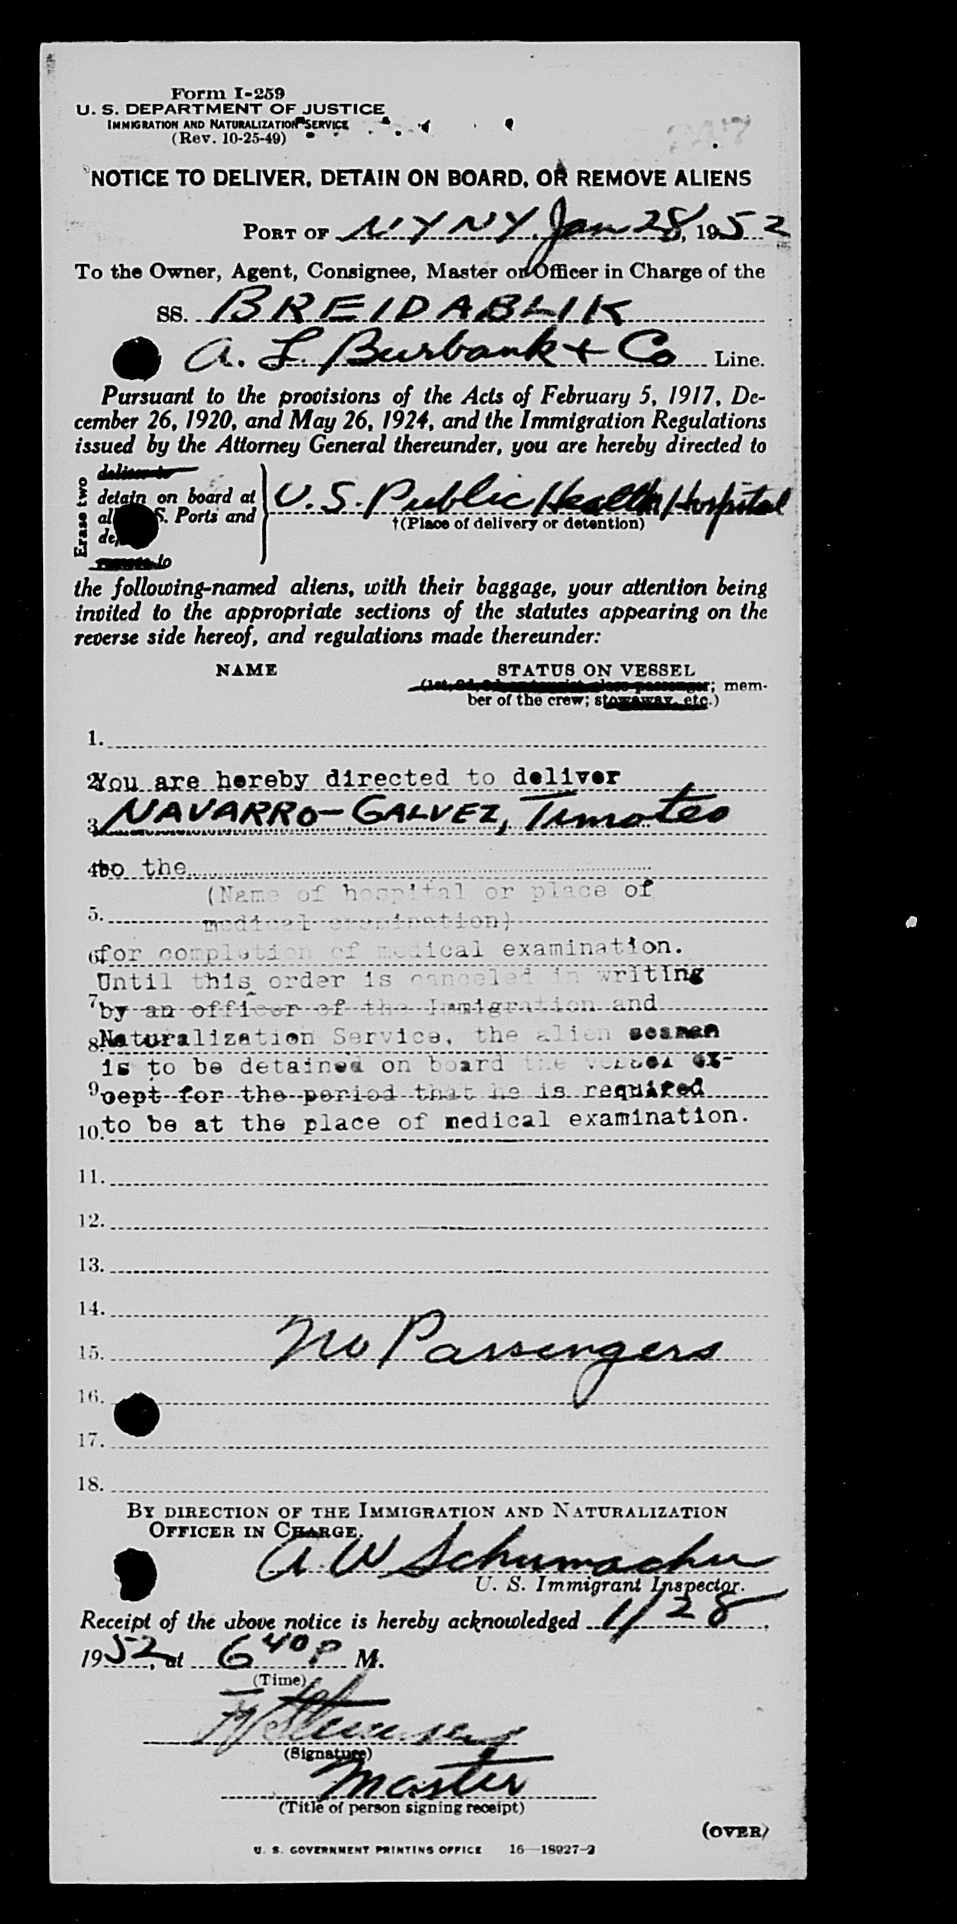 Form I-259
U. S. DEPARTMENT OF JUSTICE
IMMIGRATION AND NATURALIZATION SERVICE
(Rev. 10-25-49)
NOTICE TO DELIVER, DETAIN ON BOARD, OR REMOVE ALIENS
PORT OF NY NY Jan 28, 1952
To the Owner, Agent, Consignee, Master or Officer in Charge of the
SS. BREIDABLIK
A. L. Burbank + Co Line.
Pursuant to the provisions of the Acts of February 5, 1917, De-
cember 26, 1920, and May 26, 1924, and the Immigration Regulations
issued by the Attorney General thereunder, you are hereby directed to
Erase two
deliver to
detain on board at
all S. Ports and
U. S. Public Health Hospital
†(Place of delivery or detention)
to
the following-named aliens, with their baggage, your attention being
invited to the appropriate sections of the statutes appearing on the
reverse side hereof, and regulations made thereunder:
NAME STATUS ON VESSEL
(1st, 2d, 3d, or tourist class passenger; mem-
ber of the crew; stowaway, etc.)
1.
2. You are hereby directed to deliver
3. NAVARRO-GALVEZ, Timoteo
4. to the
(Name of hospital or place of
5. medical examination)
6. for completion of medical examination.
Until this order is canceled in writing
7. by an officer of the Immigration and
8. Naturalization Service, the alien seaman
is to be detained on board the vessel ex-
9. cept for the period that he is required
10. to be at the place of medical examination.
11.
12.
13.
14.
15. No Passengers
16.
17.
18.
BY DIRECTION OF THE IMMIGRATION AND NATURALIZATION
OFFICER IN CHARGE.
A W Schumacher
U. S. Immigrant Inspector.
Receipt of the above notice is hereby acknowledged 1/28,
1952, at 6 40 P M.
(Time)
(Signature)
Master
(Title of person signing receipt)
(OVER)
U. S. GOVERNMENT PRINTING OFFICE 16—18927-2